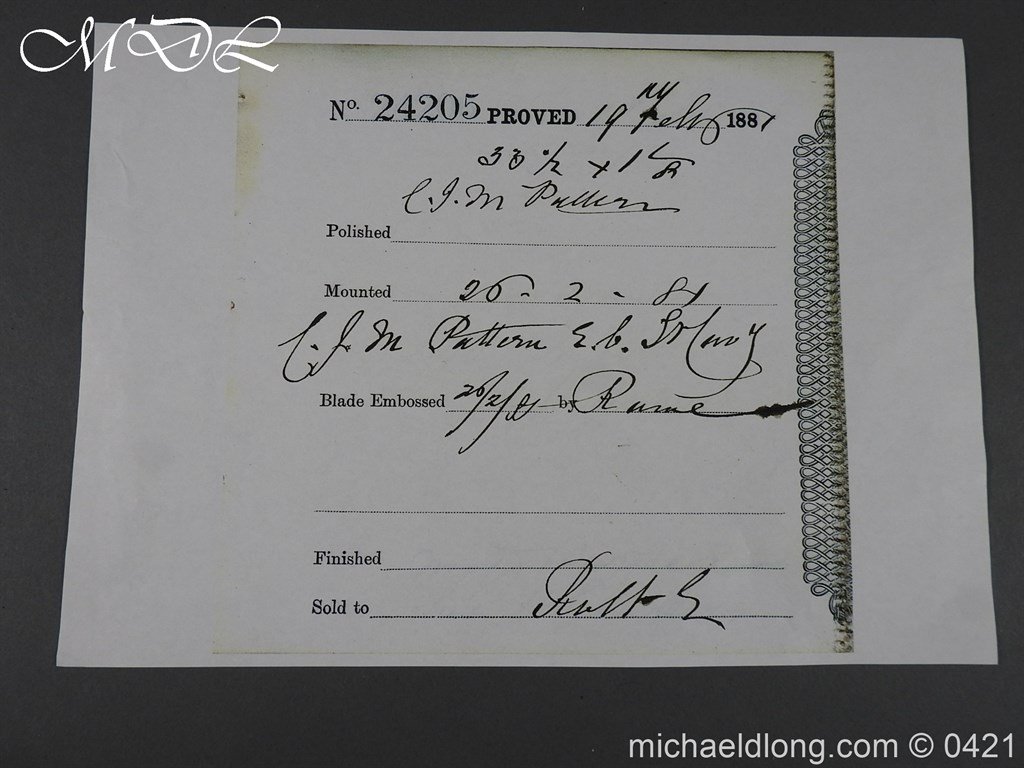 MDL
No. 24205 PROVED 19 Feb 1881
C.J.M Pattern
Polished
Mounted 26 - 2 - 81
C.J.M Pattern
Blade Embossed 26/2/81 by
Finished
Sold to
michaeldlong.com © 0421